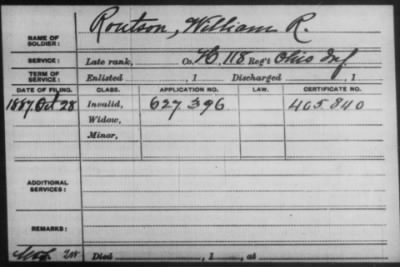 NAME OF SOLDIER: Routson, William R.
SERVICE: Late rank, Co. H, 118 Reg't Ohio Inf
TERM OF SERVICE: Enlisted , 1 Discharged , 1
DATE OF FILING. CLASS. APPLICATION NO. LAW. CERTIFICATE NO.
1887 Oct 28 Invalid, 627396 405840
Widow,
Minor,
ADDITIONAL SERVICES:
REMARKS:
Died , 1 , at